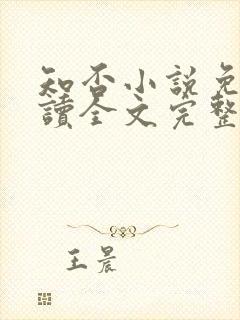 知否小説免
讀全文完整
王晨